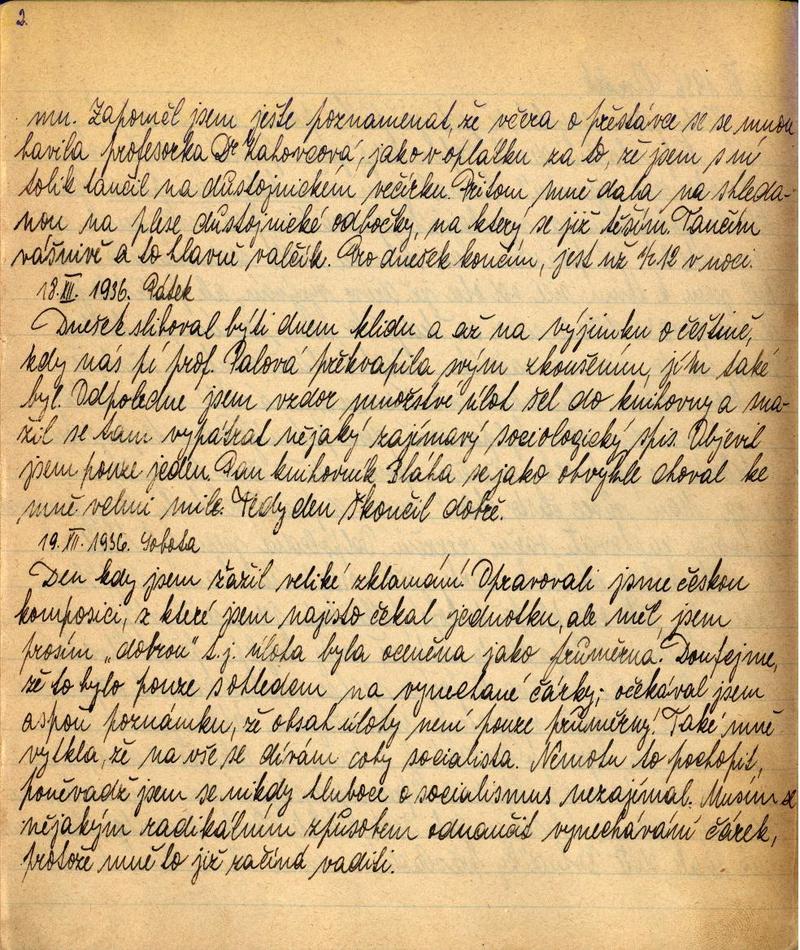 2.
mu. Zapoměl jsem ješte poznamenat, že včera o přestávce se se mnou
bavila profesorka Dr Zahovcová, jako v oplatku za to, že jsem s ní
tolik tančil na důstojnickém večírku. Přitom mně dala na shleda-
nou na plese důstojnické odbočky, na který se již těším. Tančím
vášnivě a to hlavně valčík. Pro dnešek končím, jest už 1/2 12 v noci.
18. XII. 1936. Pátek
Dnešek sliboval býti dnem klidu a až na výjimku o češtině,
kdy nás pí prof. Palová překvapila svým zkoušením, jím také
byl. Odpoledne jsem vzdor množství úloh šel do knihovny a sna-
žil se tam vypátrat nějaký zajímavý sociologický spis. Objevil
jsem pouze jeden. Pan knihovník Bláha se jako obvykle choval ke
mně velmi mile. Tedy den skončil dobře.
19. XII. 1936. Sobota
Den kdy jsem zažil veliké zklamání. Opravovali jsme českou
komposici, z které jsem najisto čekal jednotku, ale měl jsem
prosím „dobrou" t. j. úloha byla oceněna jako průměrná. Doufejme,
že to bylo pouze s ohledem na vynechané čárky; očekával jsem
aspoň poznámku, že obsah úlohy není pouze průměrný! Také mně
vytkla, že na vše se dívám coby socialista. Nemohu to pochopit,
poněvadž jsem se nikdy hluboce o socialismus nezajímal. Musím se
nějakým radikálním způsobem odnaučit vynechávání čárek,
protože mně to již začíná vaditi.